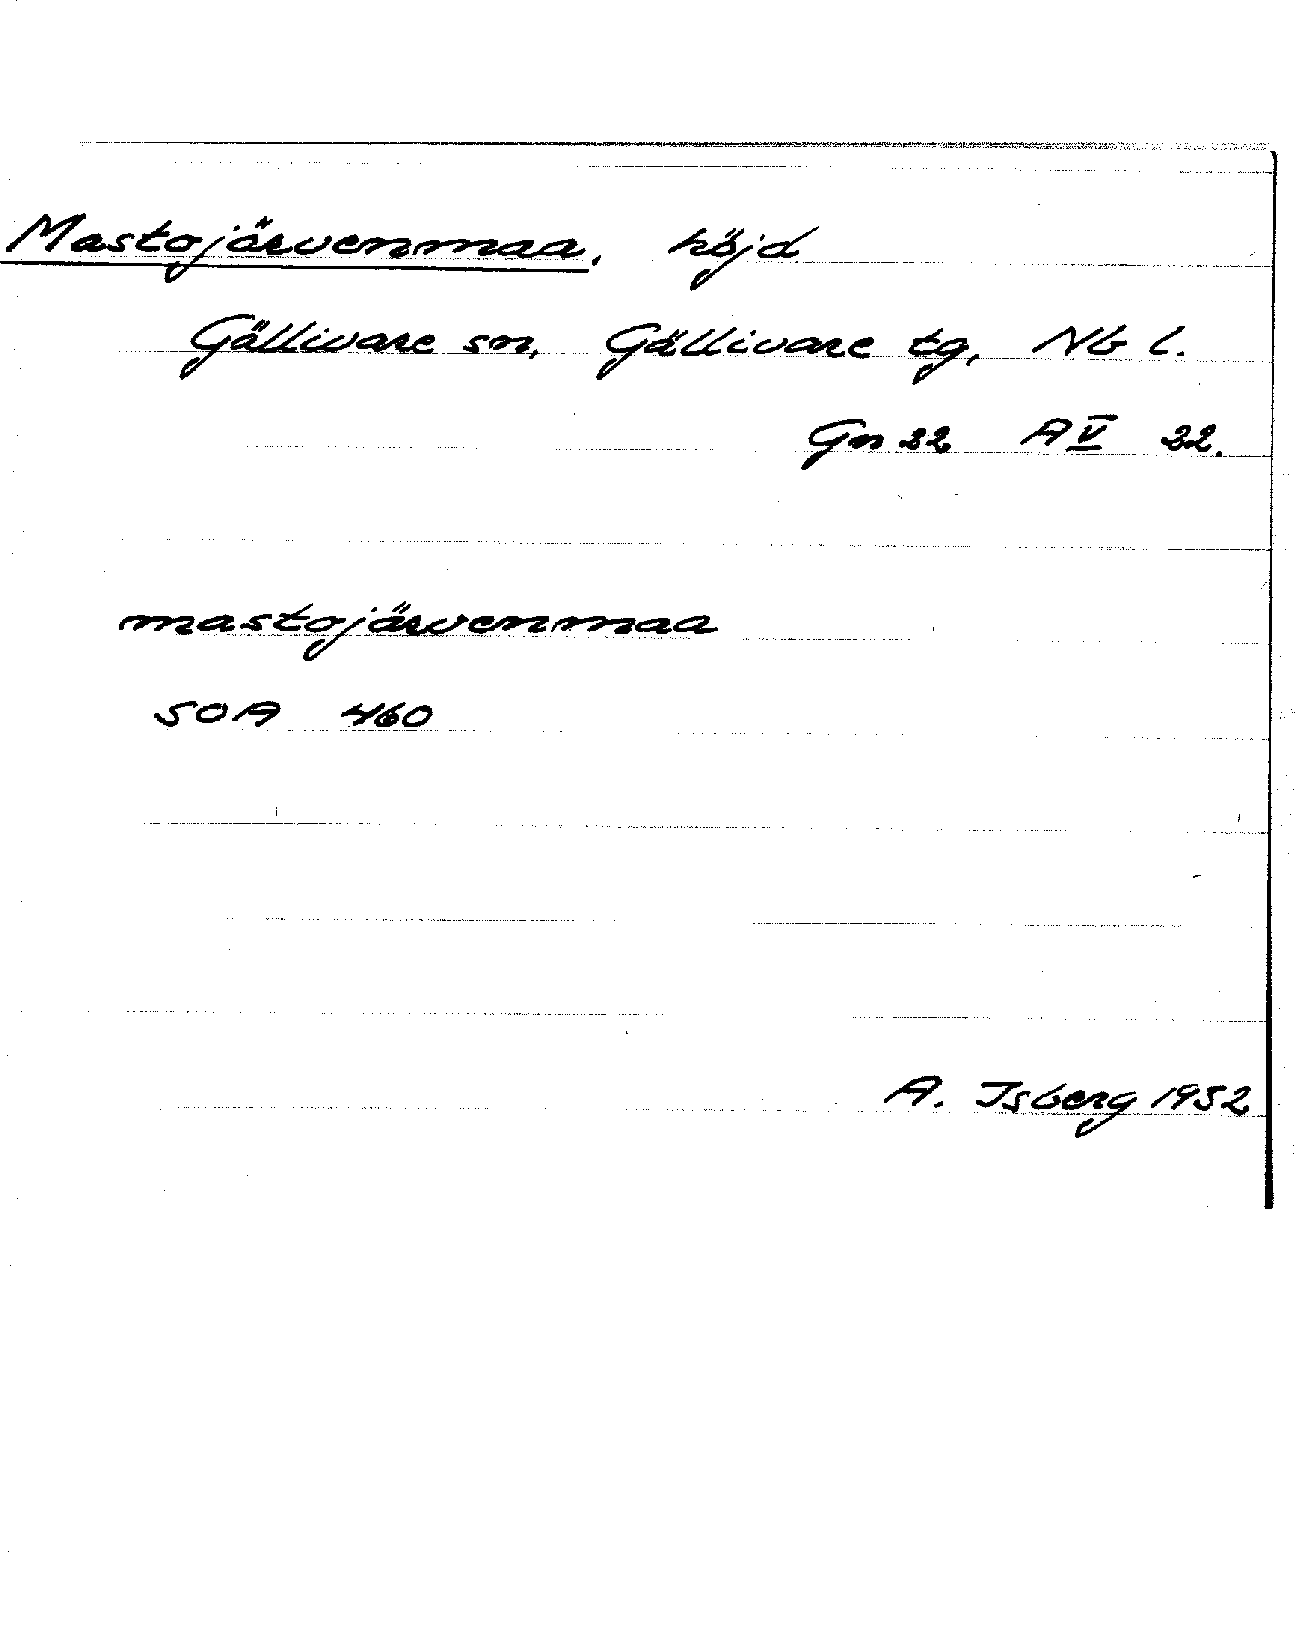 Mastojärvenmaa, höjd
Gällivare sn, Gällivare tg, Nb l.
Gn 22 A V 22.
mastojärvenmaa
SOA 460
A. Isberg 1952